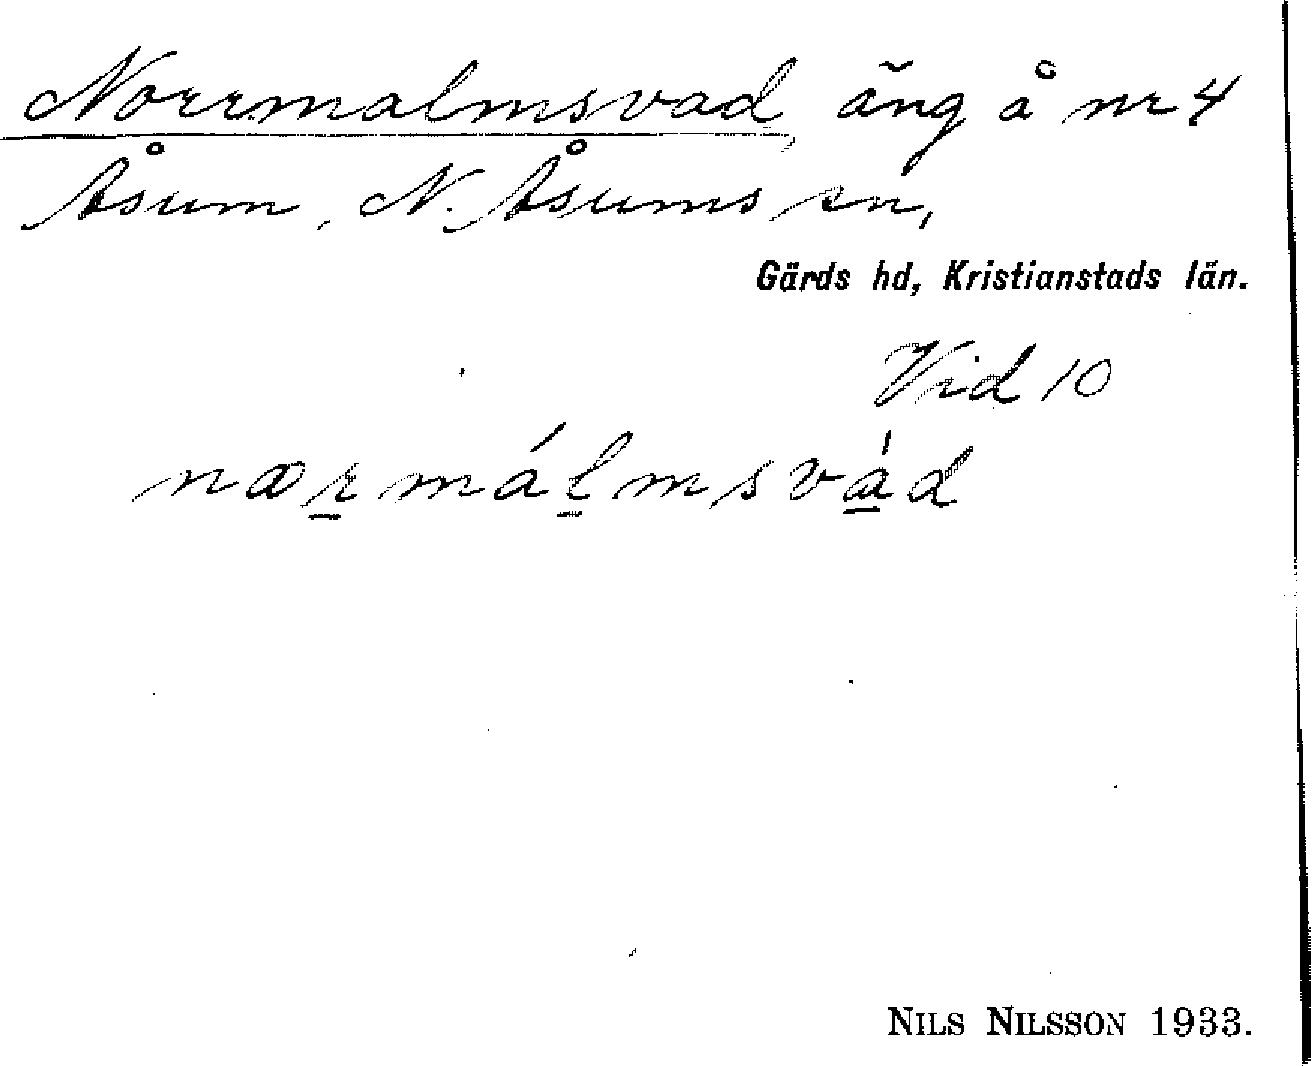 Norrmalmsvad, äng å nr 4
Åsum, N. Åsums sn,
Gärds hd, Kristianstads län.
Vid 10
nærmálmsvád
NILS NILSSON 1933.